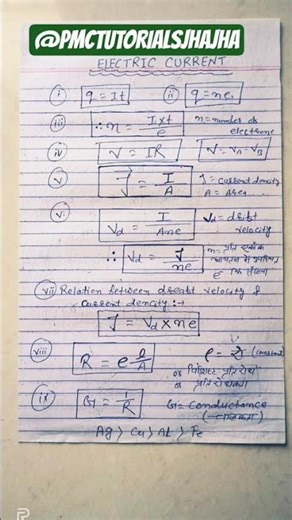 @PMCTUTORIALSJHAJHA
ELECTRIC CURRENT
(i) q = It (ii) q = ne
(iii) ∴ n = I×t/e n = number of electrons
(iv) V = IR V = VA - VB
(v) J = I/A J = current density
A = Area
(vi) Vd = I/Ane Vd = drift velocity
∴ Vd = J/ne n = प्रति एकांक
(vii) Relation between drift velocity &
current density :-
J = Vd × ne
(viii) R = e l/A ρ = (constant)
or विशिष्ट प्रतिरोध
or प्रतिरोधकता
(ix) G = 1/R G = conductance
Ag > Cu > Al > Fe